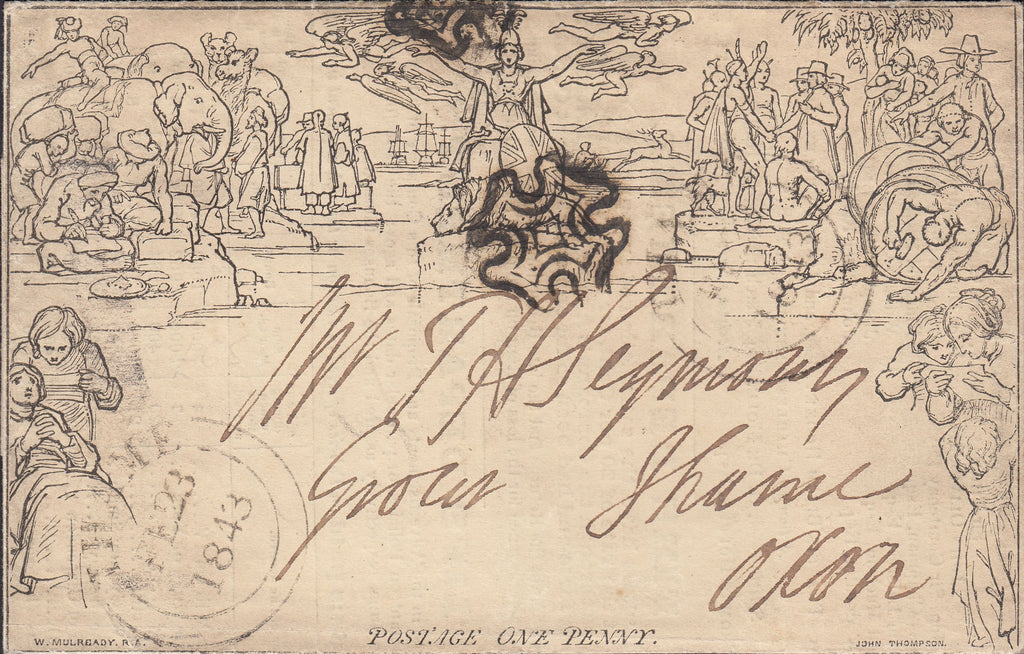 Mr T H Seymour
Grocer Thame
Oxon
THAME
FE 23
1843
POSTAGE ONE PENNY.
W. MULREADY. R.A.
JOHN THOMPSON.